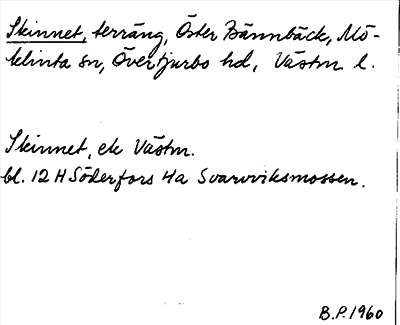 Skinnet, terräng, Öster Bännbäck, Mö-
klinta sn, Övertjurbo hd, Västm l.
Skinnet, ek Västm.
bl. 12 H Söderfors 4a Svarvviksmossen.
B.P. 1960